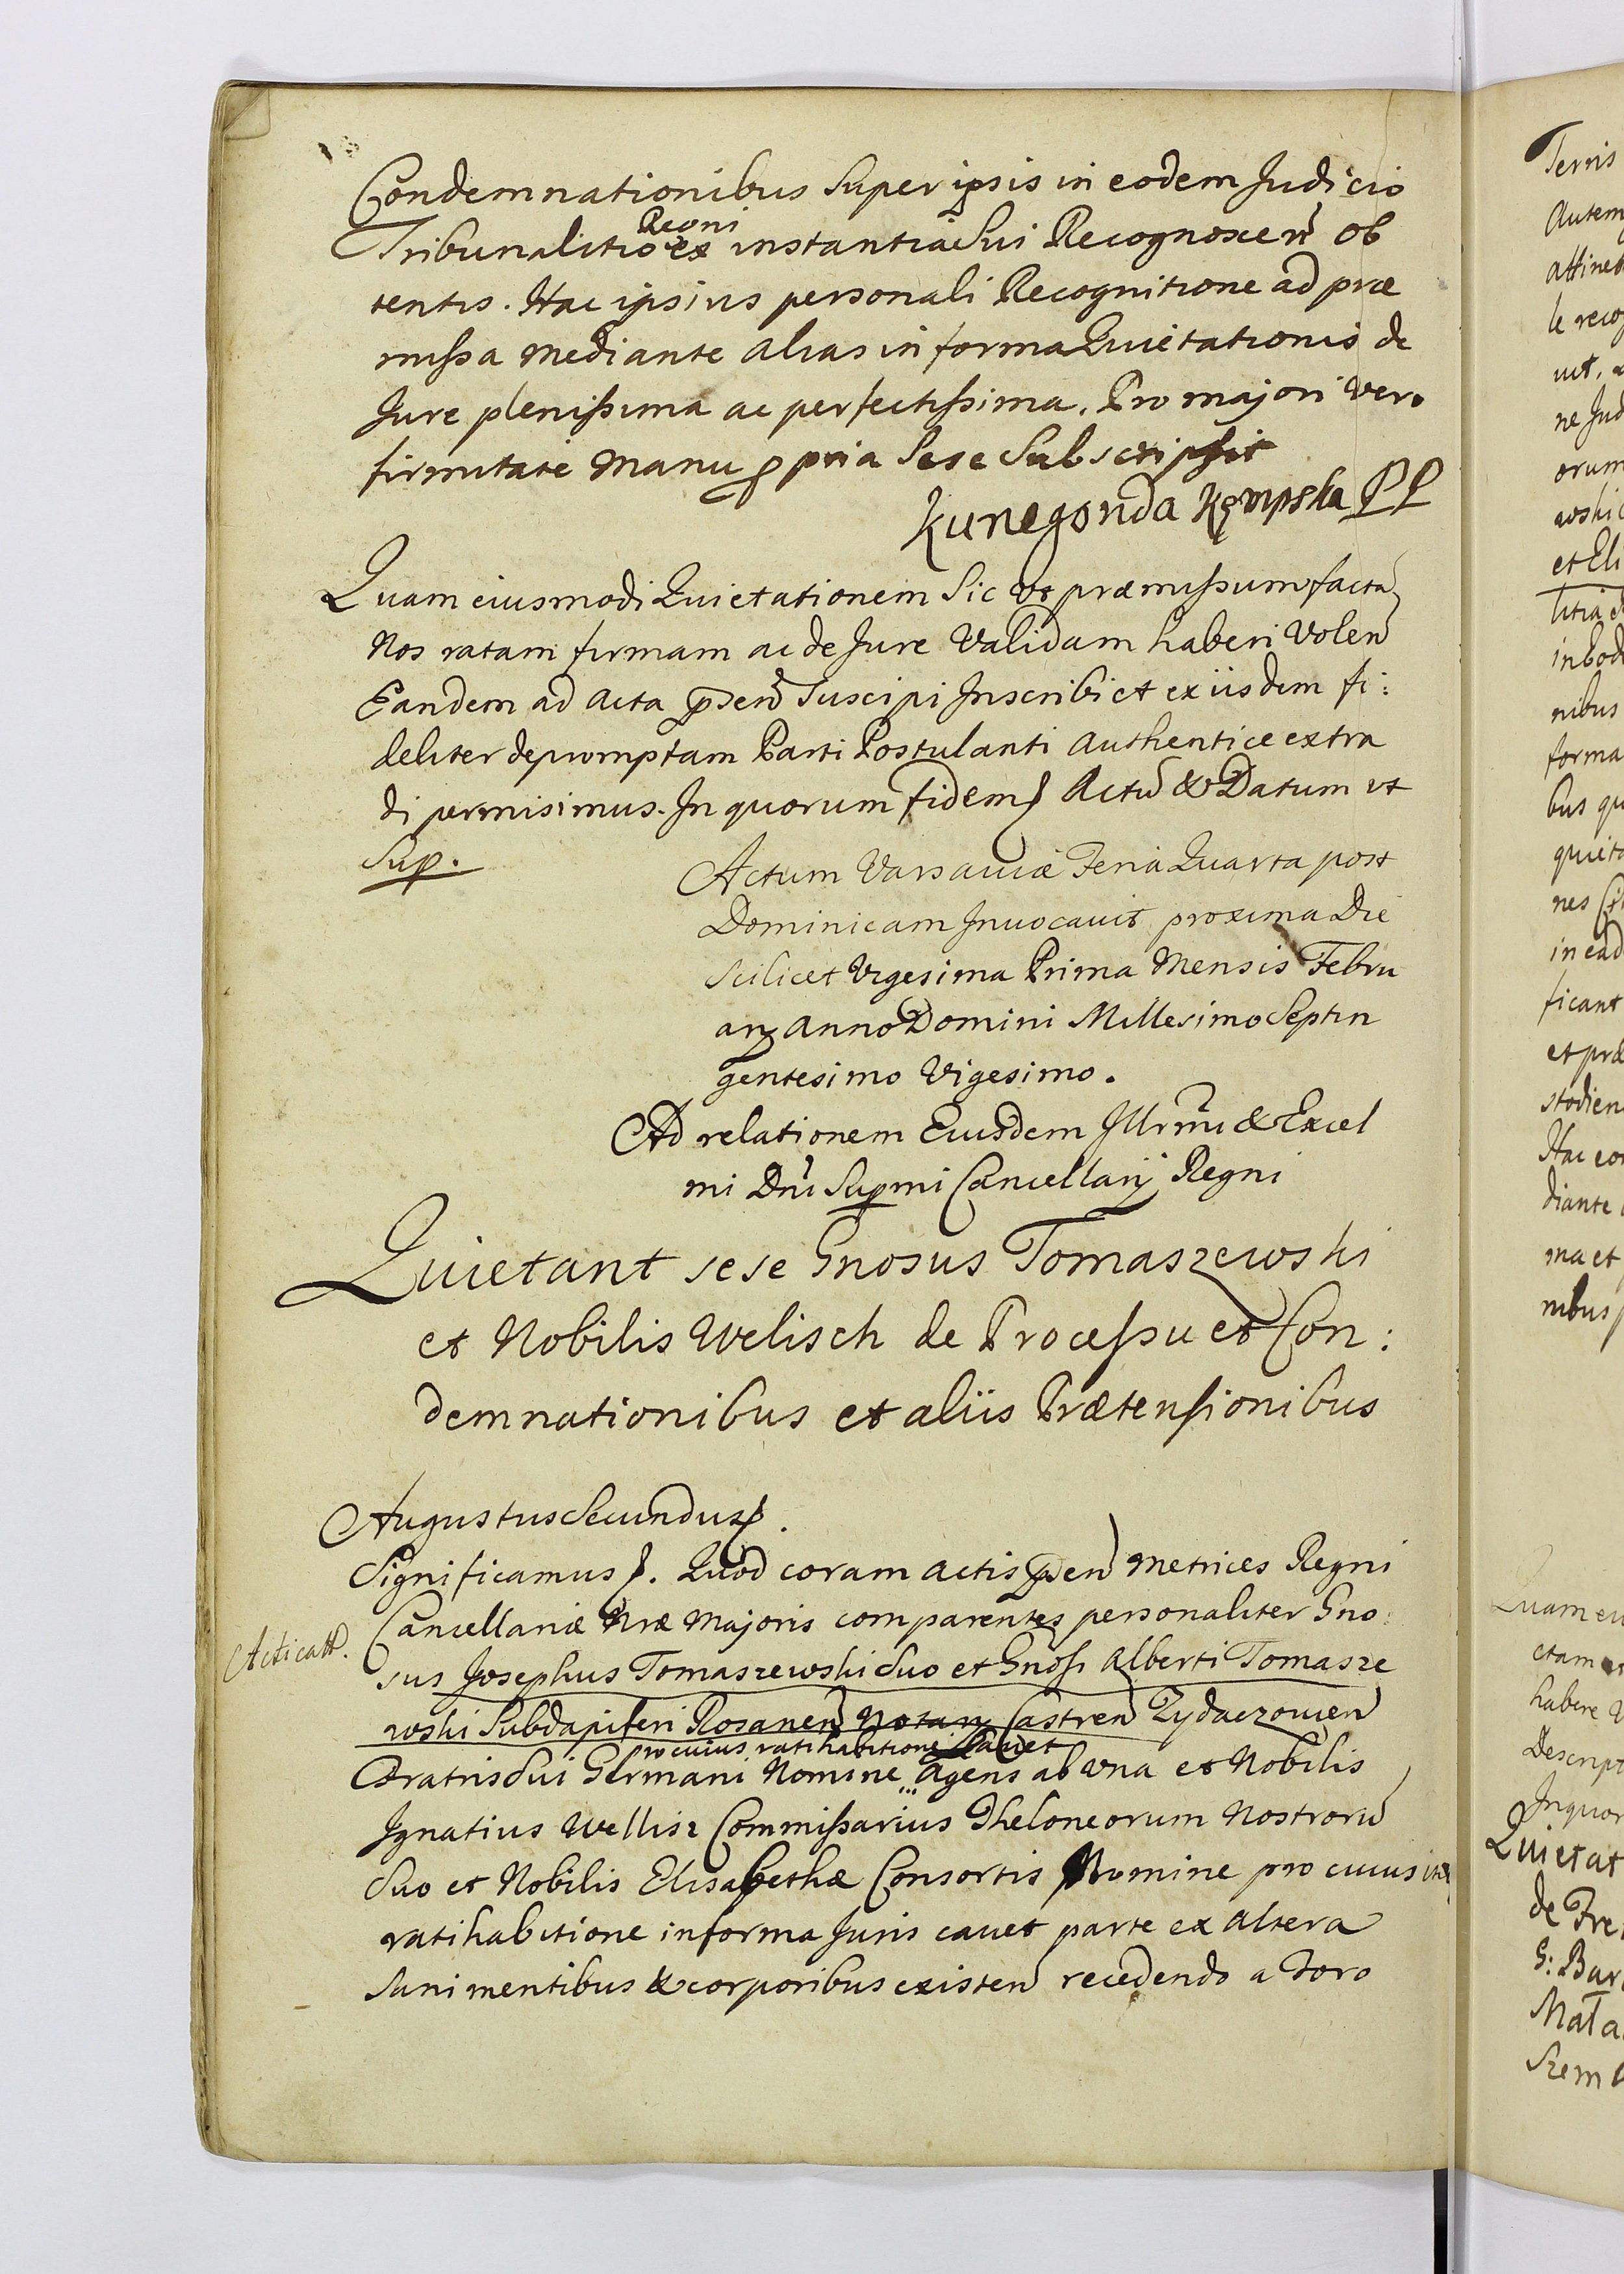 Condemnationibus Super ipsis in eodem Judicio
Tribunalitio Regni ex instantia Sui Recognoscen Ob
tentis. Hac ipsius personali Recognitione ad præ
missa mediante alias in forma Quietationis de
Jure plenissima ac perfectissima. Pro majori Vero
firmitate manu ppria Sese Subscripsit
Kunegonda Kempska PP
Quam eiusmodi Quietationem Sic Ut præmissum facta
Nos ratam firmam ac de Jure Validam haberi Volen
Eandem ad Acta psen Suscipi Inscribi et ex iisdem fi:
deliter depromptam Parti Postulanti authentice extra
di permisimus. In quorum fidem Actu & Datum ut
Sup.
Actum Varsaviæ Feria Quarta post
Dominicam Invocavit proxima Die
Scilicet Vigesima Prima Mensis Febru
arij anno Domini Millesimo Septin
gentesimo Vigesimo.
Ad relationem Eiusdem Illrmi & Excel
mi Dni Supmi Cancellarij Regni
Quietant sese Gnosus Tomaszewski
et Nobilis Welisch de Processu et Con:
demnationibus et aliis Prætensionibus
Augustus Secundus
Significamus. Quod coram actis psen Metrices Regni
Cancellariæ Nræ Majoris comparentes personaliter Gno:
Acticatt.
sus Josephus Tomaszewski Suo et Gnosi Alberti Tomasze
wski Subdapiferi Rosanen Notarij Castren Zydaczowien
pro cuius ratihabitione Cavet
Fratris Sui Germani Nomine agens ab una et Nobilis
Ignatius Wellisz Commissarius Theloneorum Nostroru
Suo et Nobilis Elisabethæ Consortis Nomine pro cuius
ratihabitione in forma Juris cavet parte ex altera
Sani mentibus & corporibus existen recedendo a Foro
Terris
Autem
attinet
ne Jud
orum
wski
et Eli
nibus
forma
bus qu
nes
in ead
ficant
et præ
stodien
diante
ma et
nibus
Quam eiu
etam
habere
Descript
In quor
Quietat
de
G: Bar